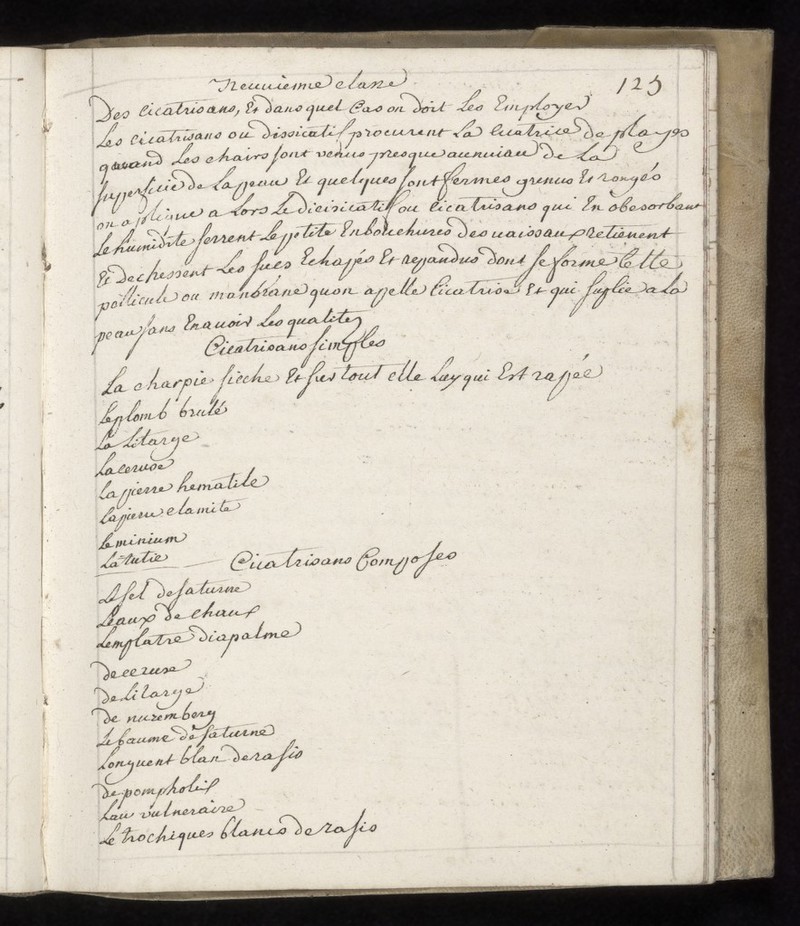 Neuuieme classe
125
Des Cicatrisans, Et dans quel Cas on doit Les Employer
Les cicatrisans ou dissicatif procurent La Cicatrise de playes
quand Les chairs sont venus presque au niuau de La
superficie de La peau Et quelques sont fermes grenus Et rongés
on aplique a Lors Le dicisicatif ou Cicatrisans qui En obesorbant
Le humidite serrent Le petite Enbouchures des uaissaux retienent
Et dechessent Les sucs Echapes Et repandus dont se forme Cette
pellicule ou manbrane quon apelle Cicatrise Et qui suplie a La
peau sans En auoir Les qualites
Cicatrisans simples
La charpie sieche Et sur tout elle Luy qui Est rapée
Le plomb brulé
La Litarge
La ceruse
La pierre hematite
La pierre calamite
Le minium
La tutie
Cicatrisans Composes
Le sel de saturne
L'eaux de chaux
Lemplatre diapalme
de ceruse
de Litarge
de nuremberg
Le baume de saturne
Longuent blan de rasis
de pompholix
Leau vulneraire
Le trochiques blancs de rasis